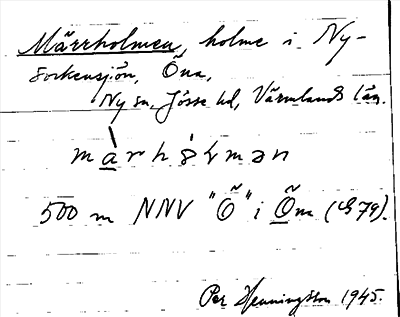 Märrholmen, holme i Ny-
sockensjön, Õna,
Ny sn, Jösse hd, Värmlands län.
500 m NNV "Õ" i Õm (G 79).
Per Henningsson 1945.